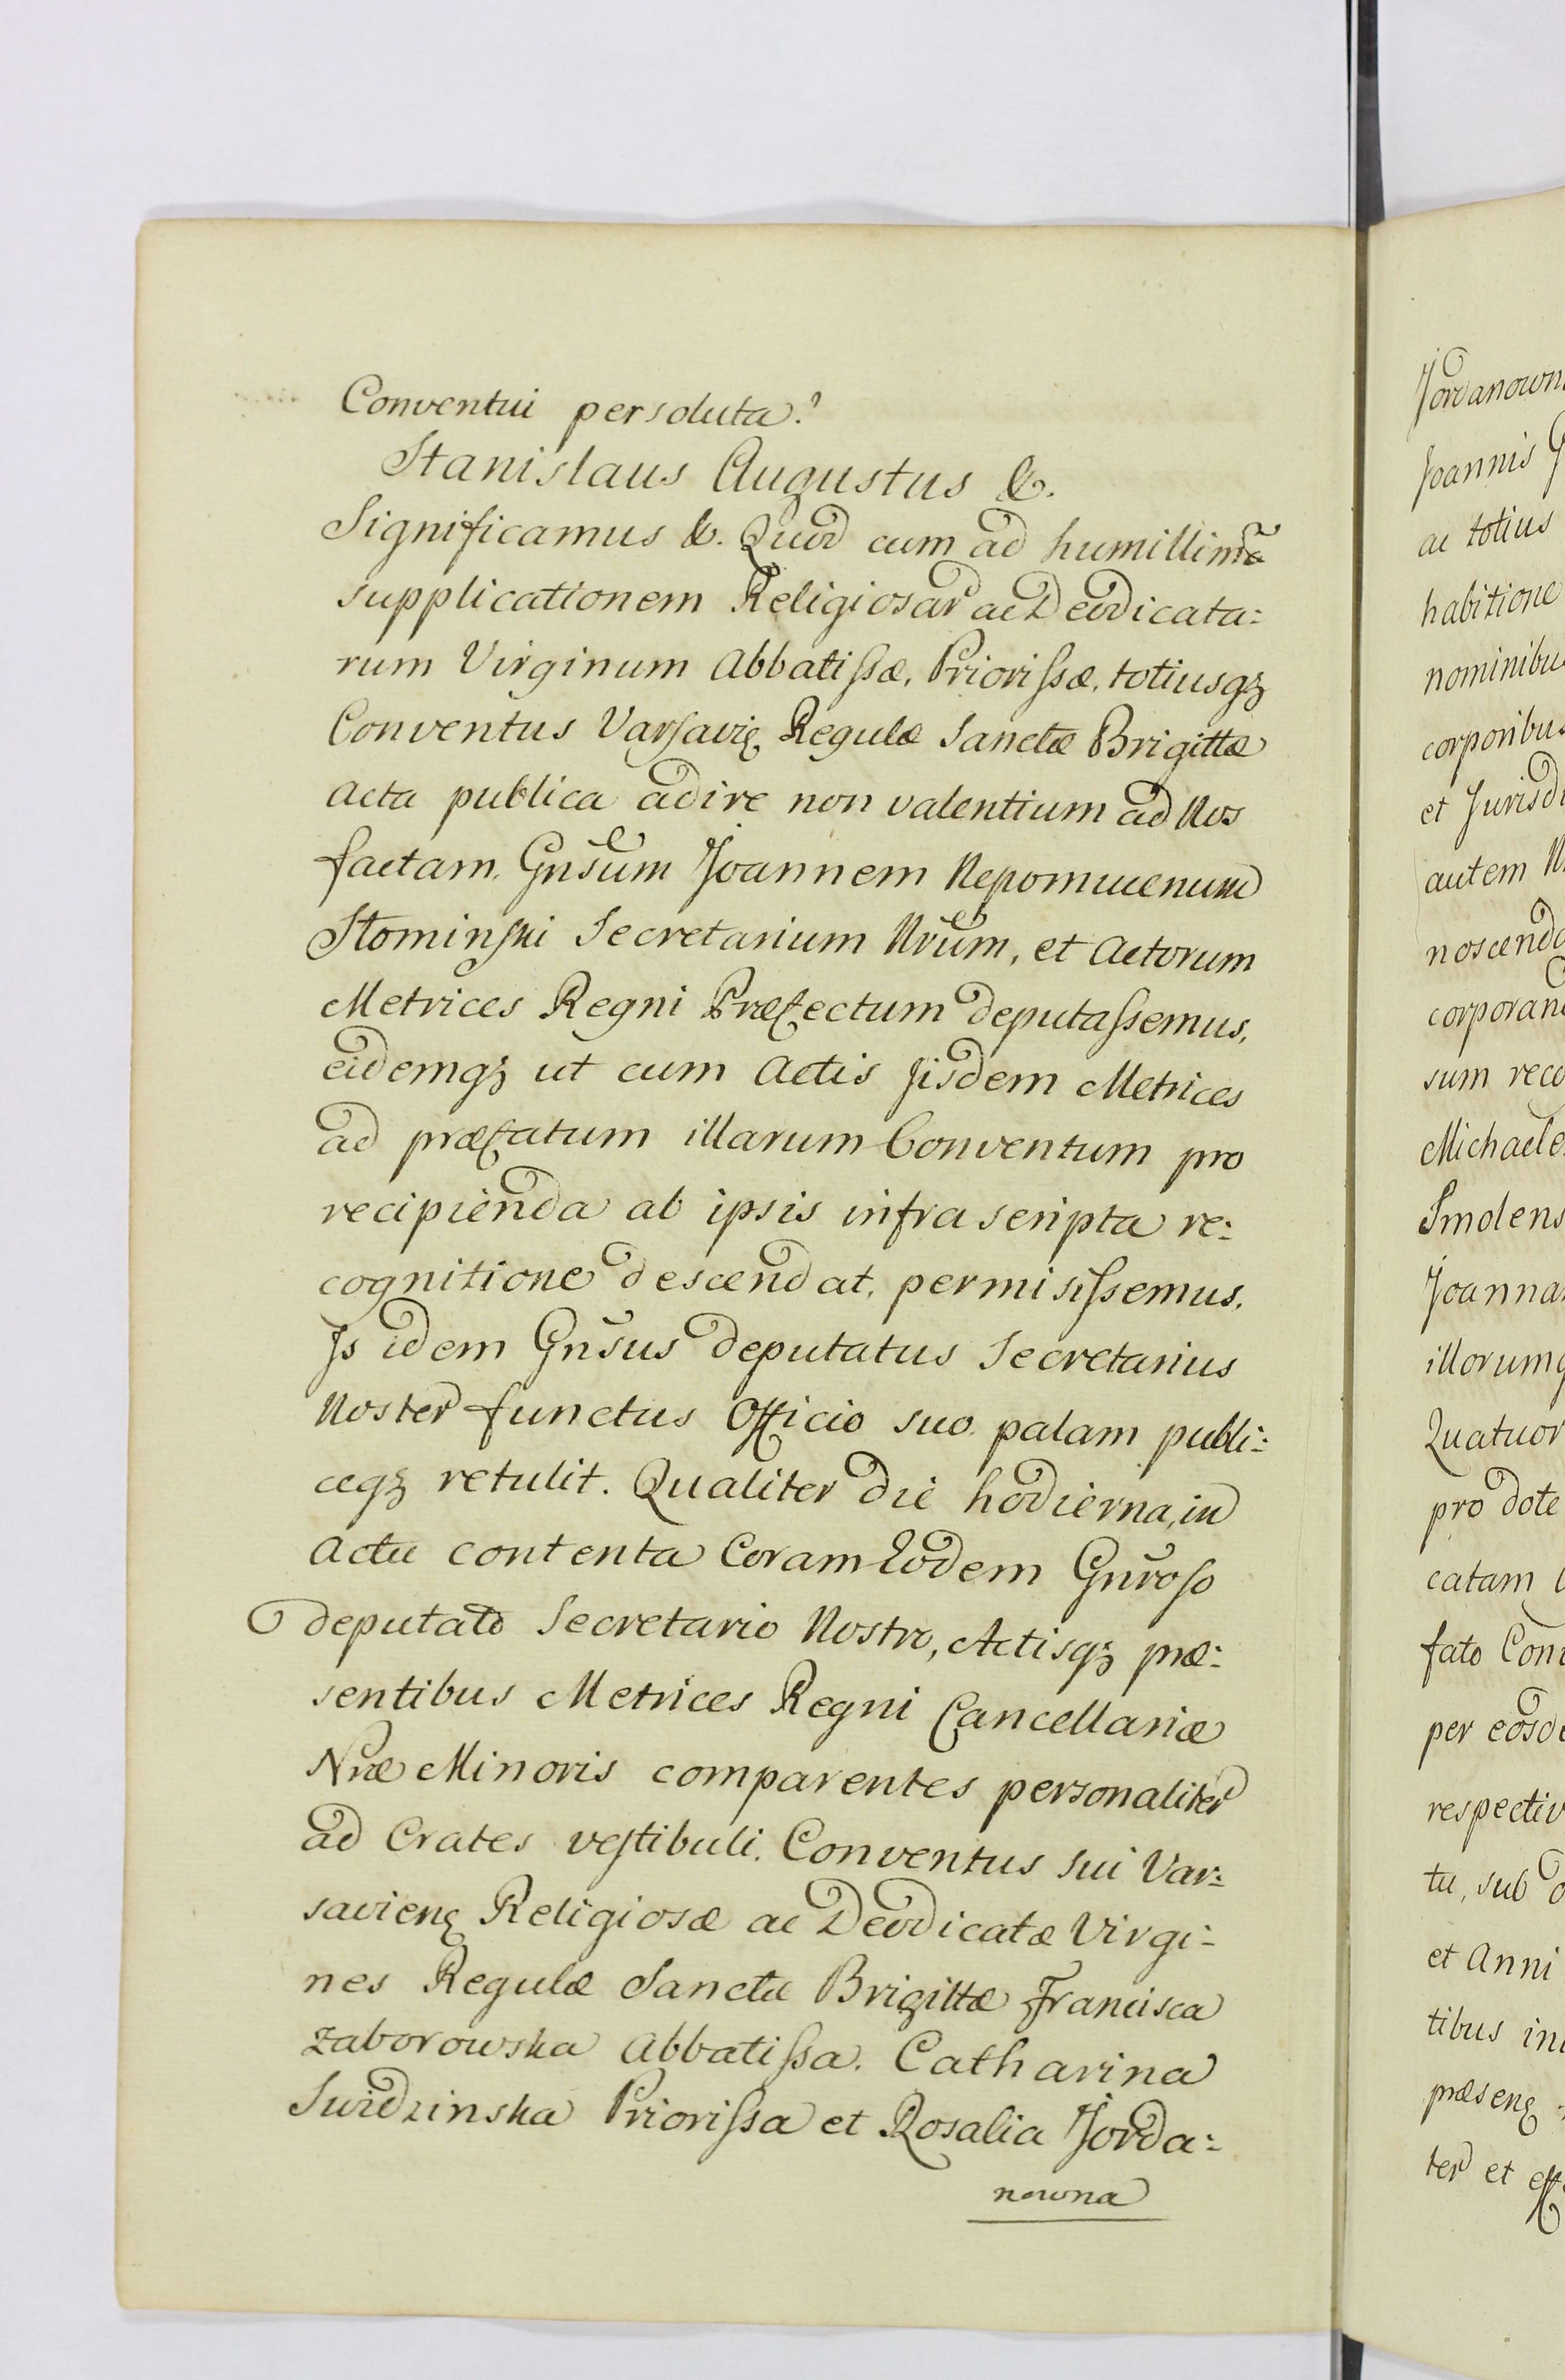 Conventui persoluta.
Stanislaus Augustus &.
Significamus &. Quod cum ad humillimã
supplicationem Religiosar ac Deodicata:
rum Virginum Abbatißæ, Priorißæ, totiusqꝫ
Conventus Varsavię Regulæ Sanctæ Brigittæ
acta publica adire non valentium ad Nos
factam. Gnsum Joannem Nepomucenum
Słominski Secretarium Nrum, et Actorum
Metrices Regni Præfectum deputaßemus,
eidemqꝫ ut cum Actis Jisdem Metrices
ad præfatum illarum Conventum pro
recipienda ab ipsis infrascripta re:
cognitione descendat, permisißemus.
Js idem Gnsus deputatus Secretarius
Noster functus Officio suo palam publi:
ceqꝫ retulit. Qualiter die hodierna, in
Actu contenta Coram Eodem Gnroso
deputato Secretario Nostro, Actisqꝫ præ:
sentibus Metrices Regni Cancellariæ
Nræ Minoris comparentes personaliter
ad Crates vestibuli Conventus sui Var:
savienę Religiosæ ac Deodicatæ Virgi:
nes Regulæ Sanctæ Brigittæ Francisca
Zaborowska Abbatißa. Catharina
Swidzinska Priorißa et Rosalia Jorda:
nowna
Jordanown
Joannis G
ac totius
habitione
nominibu
corporibus
et Jurisdi
autem N
noscendo
corporan
sum reco
Michaele
Smolens
Joanna
illorumq
Quatuor
pro dote
catam
fato Con
per eosde
respectiv
tu, sub
et Anni
tibus in
præsenę
ter et eff